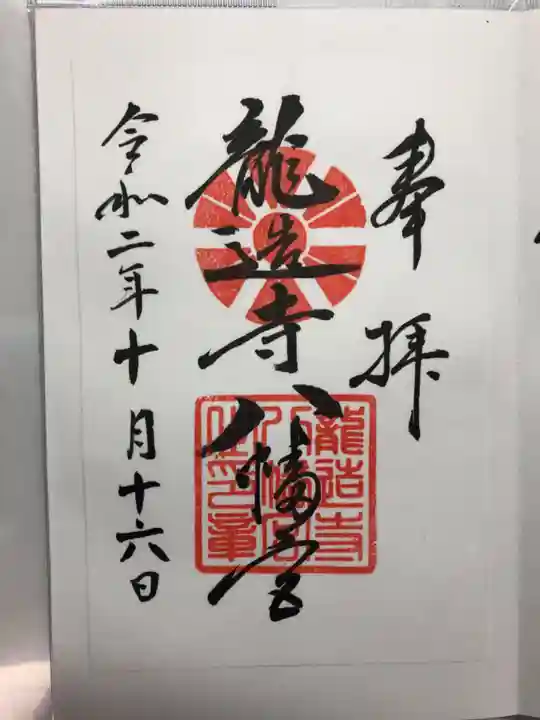 奉拝
龍造寺八幡宮
龍造寺
八幡宮
令和二年十月十六日